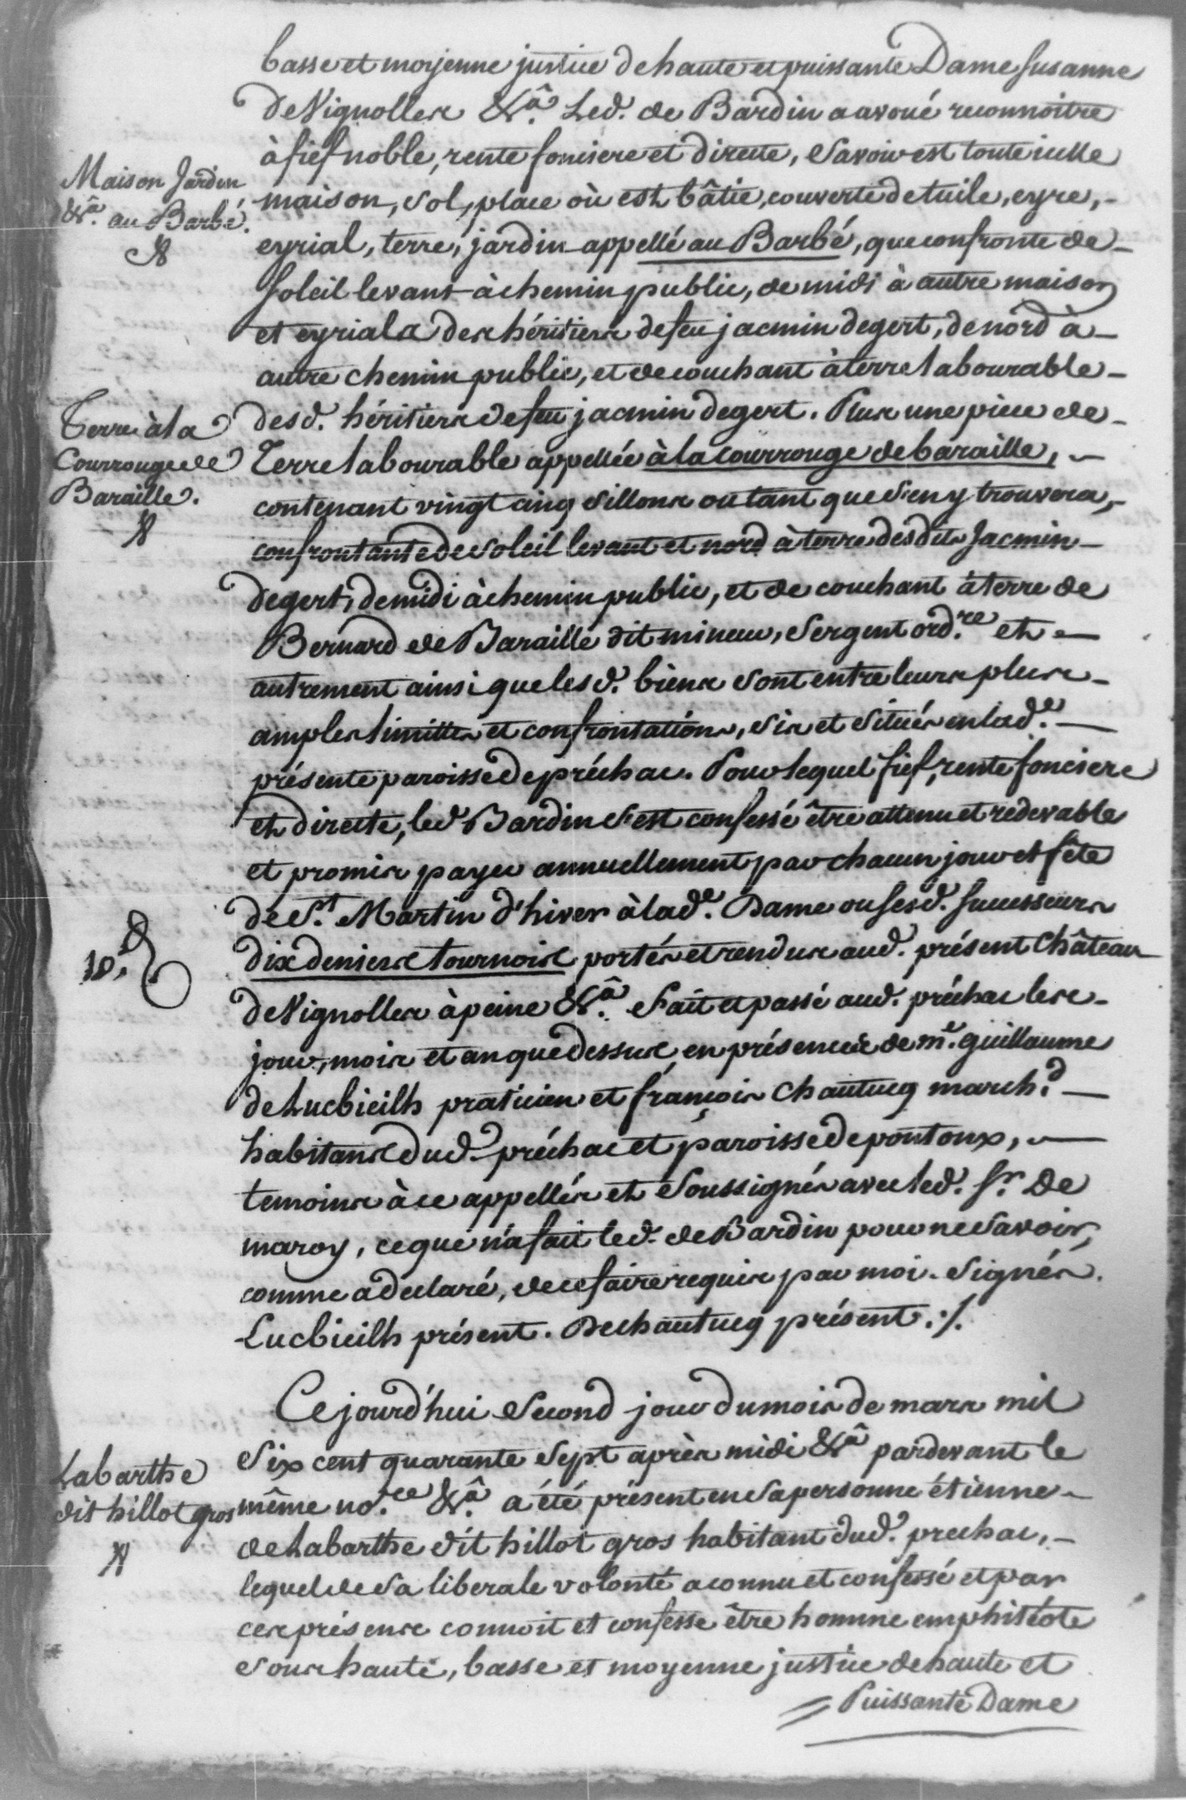 basse et moyenne justice de haute et puissante Dame Susanne
de Vignolles &.ª Led. de Bardin a avoué reconnoitre
à fief noble, rente fonciere et directe, savoir est toute icelle
Maison Jardin
&.ª au Barbé.
maison, sol, place où est bâtie, couverte de tuile, eyre,
eyrial, terre, jardin appellé au Barbé, que confronte de
soleil levant à chemin public, de midi à autre maison
et eyrials des héritiers de feu jacmin degert, de nord à
autre chemin public, et de couchant à terre labourable
desd. héritiers de feu jacmin degert. Plus une piece de
Terre à la
Courrouge de
Baraille.
Terre labourable appellée à la courrouge de baraille,
contenant vingt cinq sillons ou tant que s'en y trouvera,
confrontante de soleil levant et nord à terre desdits Jacmin
degert, de midi à chemin public, et de couchant à terre de
Bernard de Baraille dit mineur, sergent ord.re et
autrement ainsi que lesd. biens sont entre leurs plus
amples limittes et confrontations, sis et situés en lad.e
présente paroisse de préchac. Pour lequel fief, rente fonciere
et directe, led Bardin s'est confessé être attenu et redevable
et promis payer annuellement par chacun jour et fête
de S.t Martin d'hiver à lad.e Dame ou sesd. successeurs
10.d
dix deniers tournois portés et rendus aud. présent château
de Vignolles à peine &.ª Fait et passé aud. préchac les
jour, mois et an que dessus, en présence de m.e guillaume
de Lucbieilh praticien et françois Chautucq march.d
habitans dud. préchac et paroisse de pontonx,
temoins à ce appellés et soussignés avec led. s.r De
maroy, ce que n'a fait led. de Bardin pour ne savoir,
comme a declaré, de ce faire requis par moi. Signés.
Lucbieilh présent. Dechautucq présent. :/.
Ce jourd'hui second jour du mois de mars mil
six cent quarante sept après midi &ª pardevant le
Labarthe
dit hillot gros
même no.re &.ª a été présent en sa personne étienne
de Labarthe dit hillot gros habitant dud. prechac,
lequel de sa liberale volonté a connu et confessé et par
ces présens connoit et confesse être homme emphitéote
sous haute, basse et moyenne justice de haute et
Puissante Dame